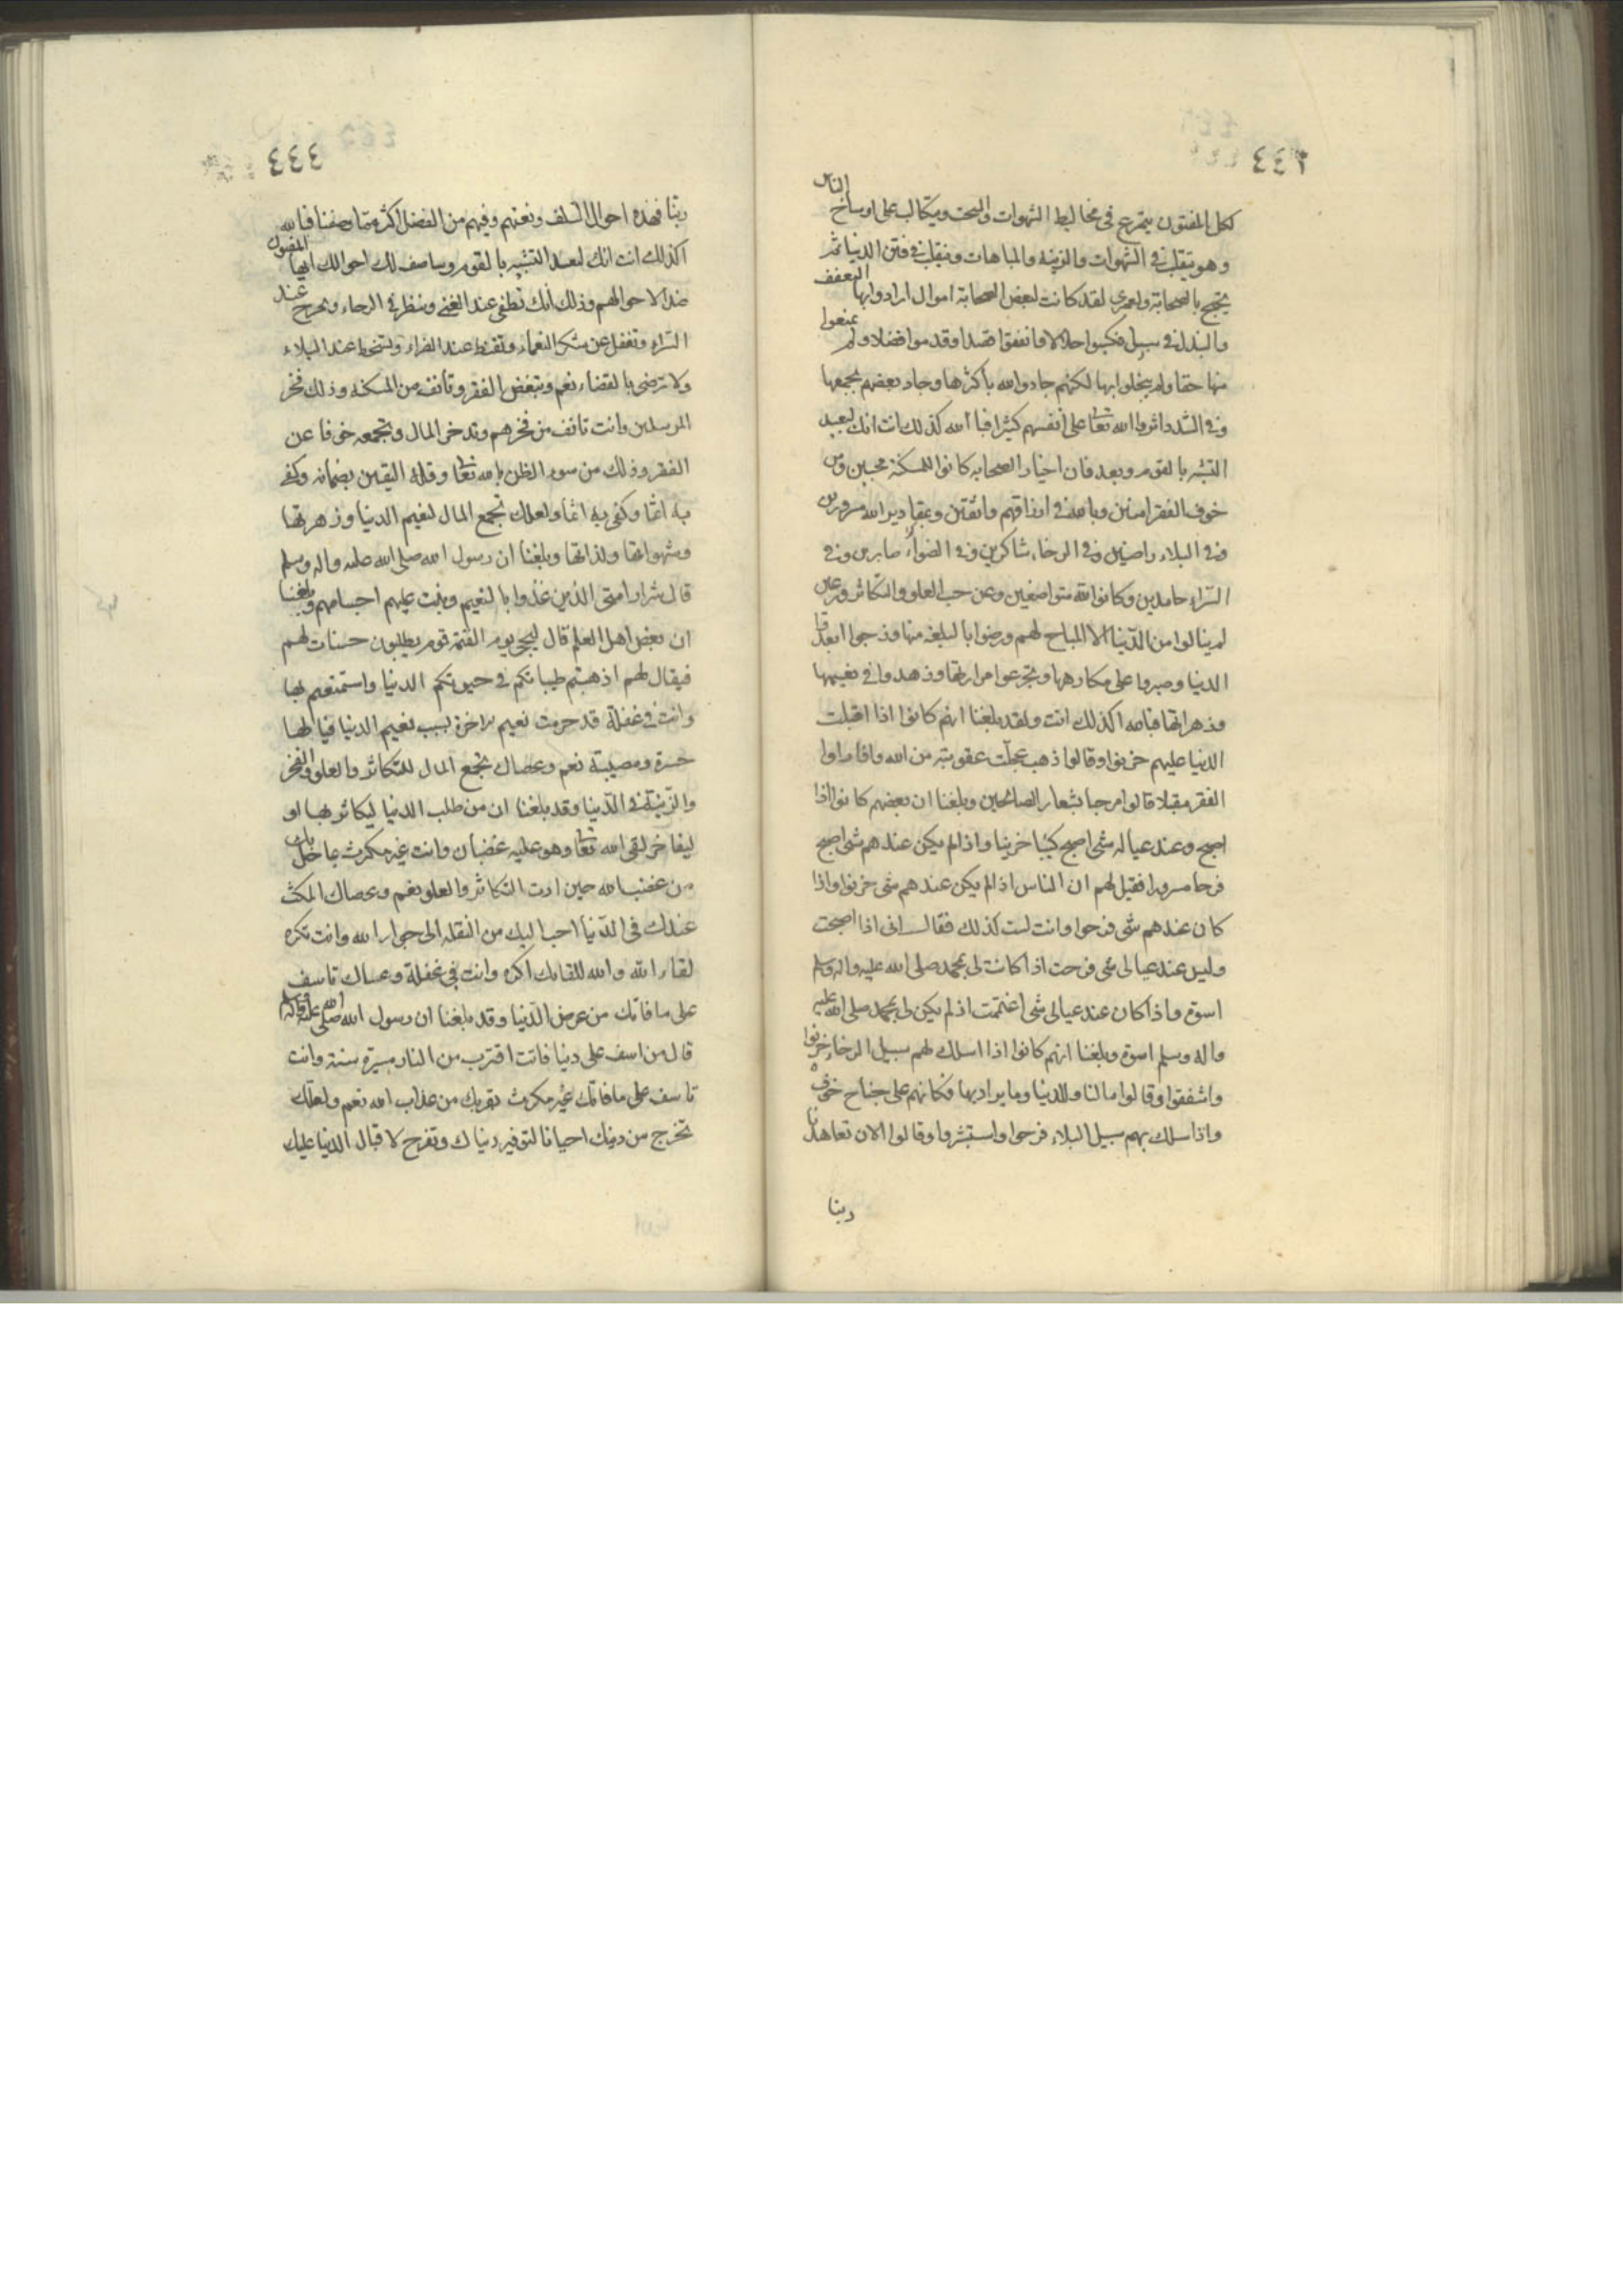 ٤٤٢
لكل المفتون يتمرغ في مخاليط الشهوات والسحت ويتكالب على اوساخ الناس
وهو يتقلب في الشهوات والزينة والمباهات ويتقلب في فتن الدنيا ثم
يحتج بالصحابة ولعمرى لقد كانت لبعض الصحابة اموال ارادوا بها التعفف
والبذل في سبيل فكسبوا حلالا وانفقوا قصدا وقدموا فضلا ولم يمنعوا
منها حقا ولم يبخلوا بها لكنهم جادوا لله باكثرها وجاد بعضهم بجميعها
وفي الشدد اثروا الله تعا على انفسهم كثيرا فبالله كذلك انت انك لبعيد
التشبه بالقوم وبعد فان اخيار الصحابه كانوا للمسكنة محبين ومن
خوف الفقر امنين وبالله في ارزاقهم واثقين وبمقادير الله مسرورين
وفي البلاء راضين وفي الرخاء شاكرين وفي الضراء صابرين وفي
السراء حامدين وكانوا لله متواضعين وعن حب العلو والتكاثر ورعين
لم ينالوا من الدنيا الا المباح لهم ورضوا بالبلغة منها وزجوا
الدنيا وصبروا على مكارهها وتجرعوا مرارتها وزهدوا في نعيمها
وزهراتها فبالله اكذلك انت ولقد بلغنا انهم كانوا اذا اقبلت
الدنيا عليهم حزنوا وقالوا ذهب عجلت عقوبته من الله واذا راوا
الفقر مقبلا قالوا مرحبا بشعار الصالحين وبلغنا ان بعضهم كانوا اذا
اصبح وعند عياله شى اصبح كئيبا حزينا واذا لم يكن عندهم شى اصبح
فرحا مسرورا فقيل لهم ان الناس اذ الم يكن عندهم شى حزنوا واذا
كان عندهم شى فرحوا وانت لست كذلك فقال انى اذا اصبحت
وليس عند عيالى شى فرحت اذا كانت لى بمحمد صلى الله عليه واله وسلم
اسوة واذا كان عند عيالى شى اغتممت اذ لم يكن لى بمحمد صلى الله عليه
واله وسلم اسوة وبلغنا انهم كانوا اذا اسلك لهم سبيل الرخاء حزنوا
واشفقوا وقالوا مالنا وللدنيا وما يراد بها فكانهم على جناح خوف
واذا سلك بهم سبيل البلاء فرحوا واستبشروا وقالوا الان تعاهدنا
ربنا
٤٤٣
ربنا فهذه احوال السلف ونعتهم وفيهم من الفضل اكثر مما وصفنا فبالله
اكذلك انت انك لبعيد التشبه بالقوم وساصف لك احوالك ايها المفتون
ضدا لاحوالهم وذلك انك تطغى عند الغنى وتبطر في الرخاء وتمرح عند
السراء وتغفل عن شكر النعماء وتقنط عند الضراء وتسخط عند البلاء
ولا ترضى بالقضاء نعم وتبغض الفقر وتانف من المسكنة وذلك فخر
المرسلين وانت تانف من فخرهم وتدخر المال وتجمعه خوفا عن
الفقر وذلك من سوء الظن بالله تعا وقلة اليقين بضمانه وكفى
به اثما وكفى به اثما ولعلك تجمع المال لنعيم الدنيا وزهرتها
وشهواتها ولذاتها وبلغنا ان رسول الله صلى الله عليه واله وسلم
قال شرار امتى الذين غذوا بالنعيم ونبت عليهم اجسامهم وبلغنا
ان بعض اهل العلم قال ليجئ يوم القيمة قوم يطلبون حسنات لهم
فيقال لهم اذهبتم طيباتكم في حيوتكم الدنيا واستمتعتم بها
وانت في غفلة قد حرمت نعيم الاخرة بسبب نعيم الدنيا فيا لها
حسرة ومصيبة نعم وعساك تجمع المال للتكاثر والعلو والفخر
والزينة في الدنيا وقد بلغنا ان من طلب الدنيا ليكاثر بها او
ليفاخر لقى الله تعا وهو عليه غضبان وانت غير مكترث بما حل بك
من غضب الله حين اردت التكاثر والعلو نعم وعساك المكث
عندك في الدنيا احب اليك من النقله الى جوار الله وانت تكره
لقاء الله والله للقائك اكره وانت في غفلة وعساك تاسف
على ما فاتك من عرض الدنيا وقد بلغنا ان رسول الله صلى الله عليه واله
قال من اسف على دنيا فاتت اقترب من النار مسيرة سنة وانت
تاسف على ما فاتك غير مكترث بقربك من عذاب الله نعم ولعلك
تخرج من دينك احيانا لتوفير دنياك وتفرح لاقبال الدنيا عليك